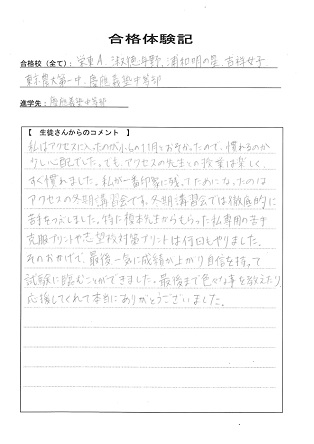 合格体験記
合格校(全て): 栄東A、淑徳与野、浦和明の星、吉祥女子
東京農大第一中、慶應義塾中等部
進学先: 慶應義塾中等部
【 生徒さんからのコメント 】
私はアクセスに入ったのが小6の11月とおそかったので、慣れるのか
少し心配でした。でも、アクセスの先生との授業は楽しく、
すぐ慣れました。私が一番印象に残ってためになったのは
アクセスの冬期講習会です。冬期講習会では徹底的に
苦手をつぶしました。特に先生からもらった私専用の苦手
克服プリントや志望校対策プリントは何回もやりました。
そのおかげで、最後一気に成績が上がり自信を持って
試験に臨むことができました。最後まで色々な事を教えたり
応援してくれて本当にありがとうございました。